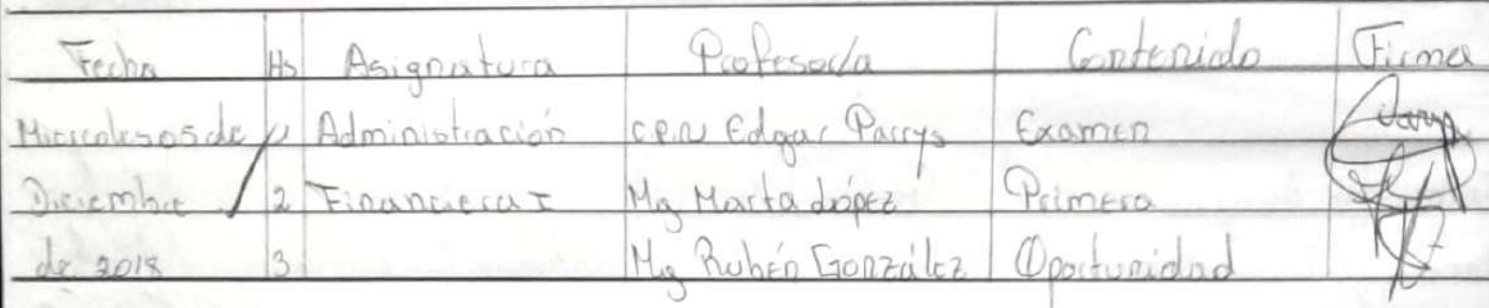 Fecha Hs Asignatura Profesor/a Contenido Firma
Miercoles 05 de Administración C.P.N Edgar Parrys Examen
Diciembre 2 Financiera I Mg Marta López Primera
de 2018 3 Mg Rubén González Oportunidad